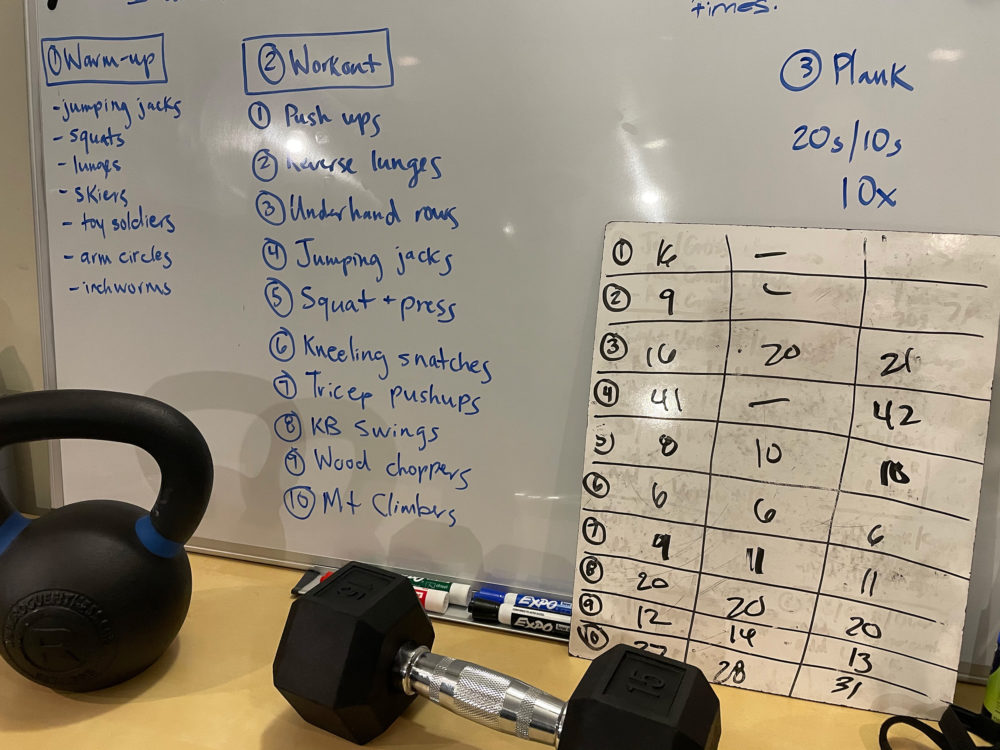 times.
① Warm-up
- jumping jacks
- squats
- lunges
- skiers
- toy soldiers
- arm circles
- inchworms
② Workout
① Push ups
② Reverse lunges
③ Underhand rows
④ Jumping jacks
⑤ Squat + press
⑥ Kneeling snatches
⑦ Tricep pushups
⑧ KB Swings
⑨ Wood choppers
⑩ Mt Climbers
③ Plank
20s/10s
10x
① 16 —
② 9 —
③ 16 20 21
④ 41 — 42
⑤ 8 10
⑥ 6 6 6
⑦ 9 11 11
⑧ 20 20 20
⑨ 12 14 13
⑩ 28 31
EXPO
EXPO
15
15